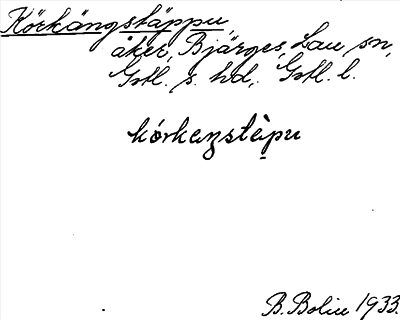 Körkängstäppu,
åker, Bjärges, Lau sn,
Gotl. s. hd, Gotl. l.
kórkeŋstàpu
B. Bolin 1933.